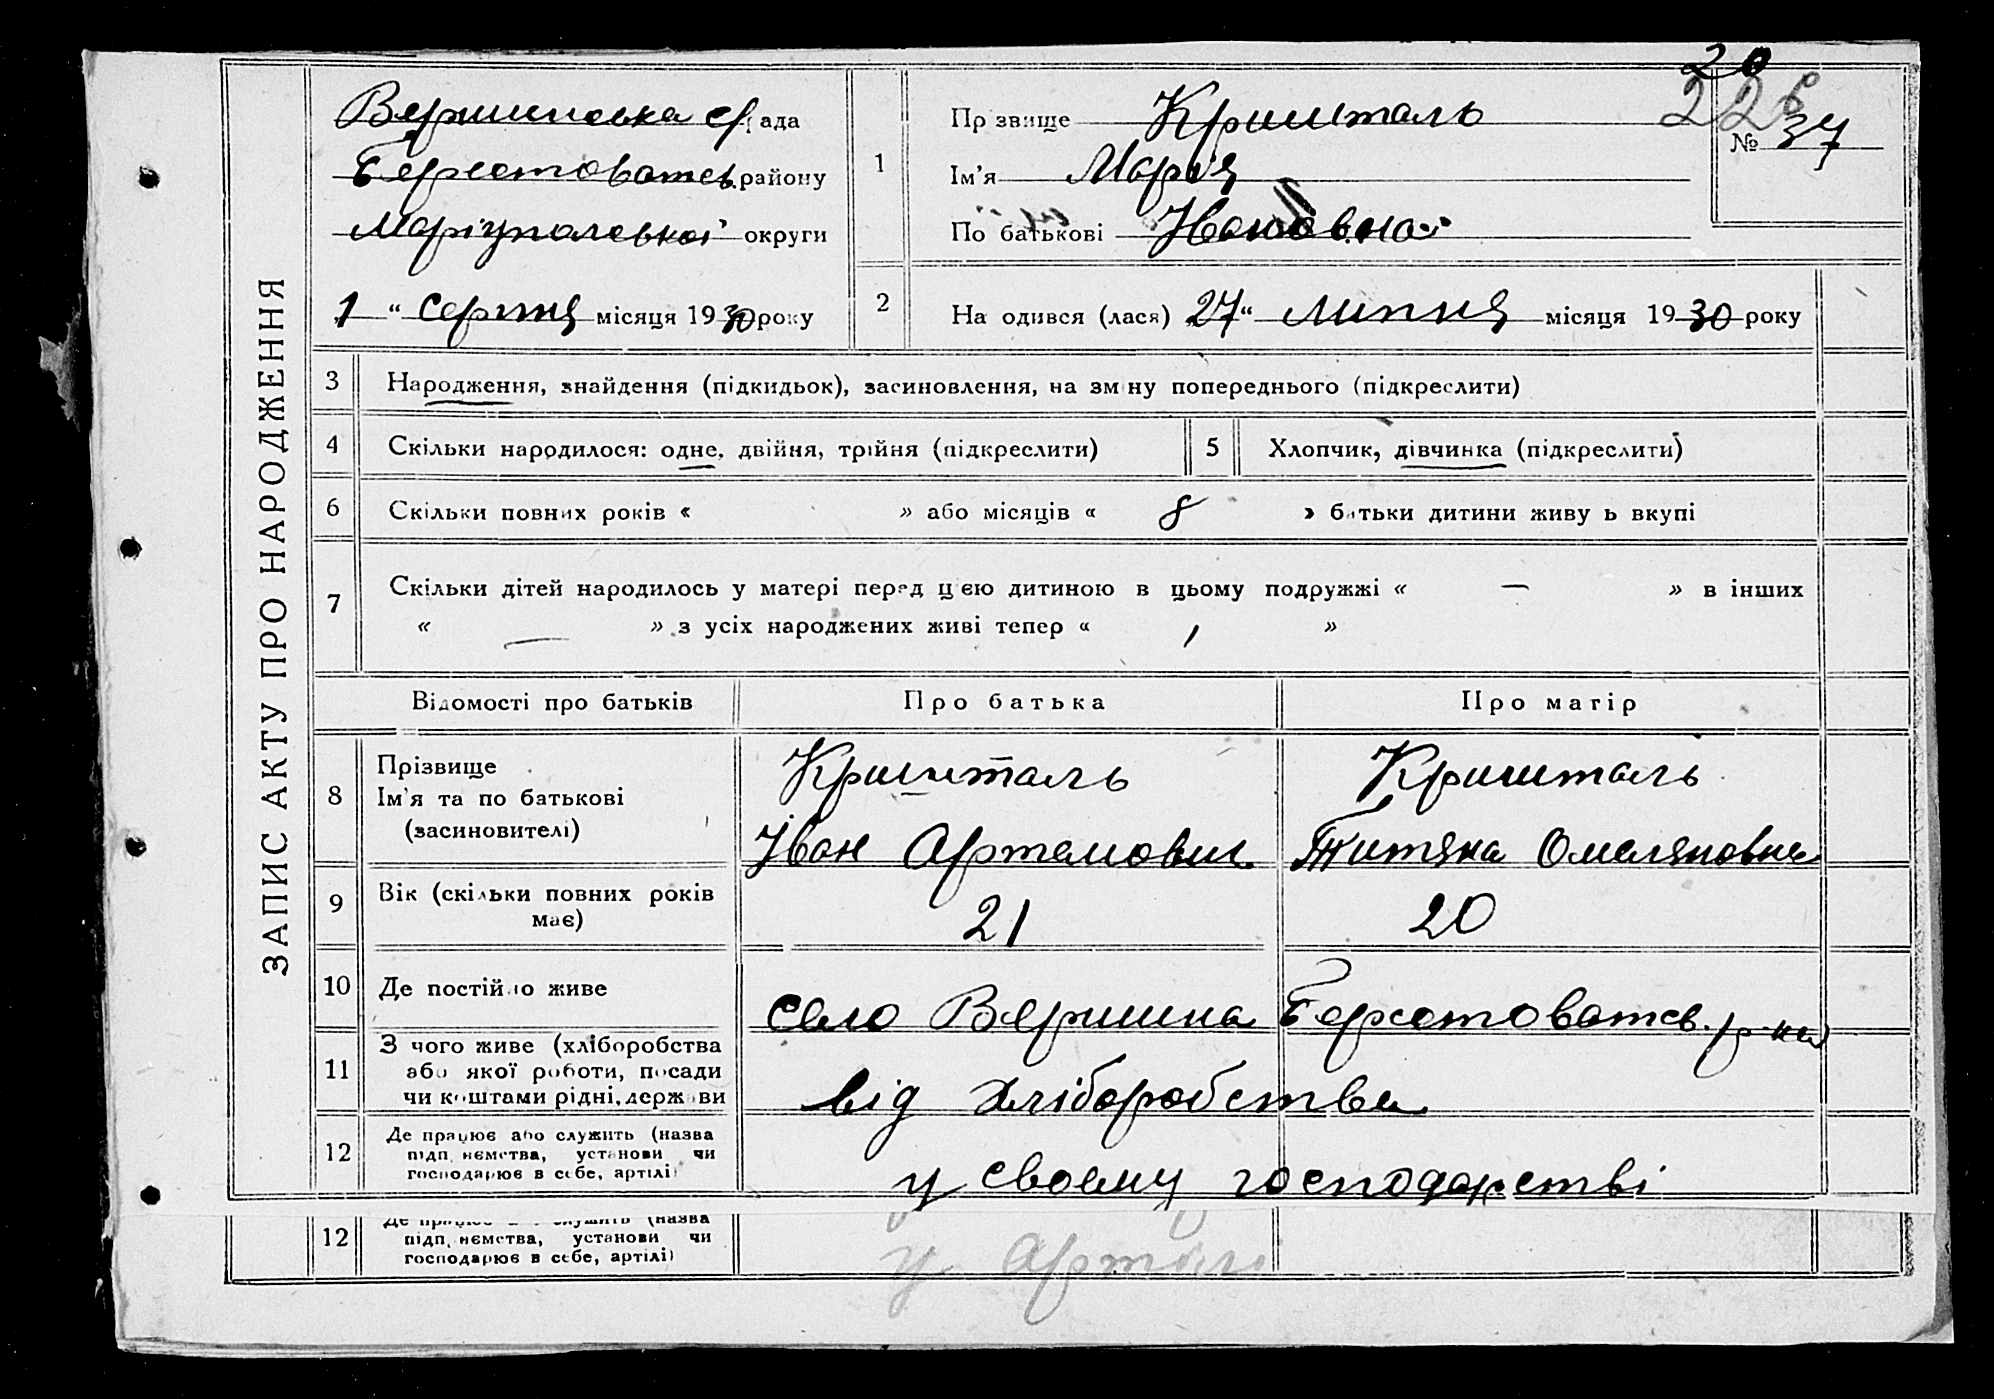 20
226
Вершинська с/рада
Берестоватсь. району
Маріупольської округи
1 " серпня місяця 1930 року
1
Прізвище Кришталь
№ 37
Ім'я Марія
По батькові Івановна
2
На одився (лася) 27 " липня місяця 1930 року
ЗАПИС АКТУ ПРО НАРОДЖЕННЯ
3 Народження, знайдення (підкидьок), засиновлення, на зм ну попереднього (підкреслити)
4 Скільки народилося: одне, двійня, трійня (підкреслити) 5 Хлопчик, дівчинка (підкреслити)
6 Скільки повних років « » або місяців « 8 » батьки дитини живу ь вкупі
7 Скільки дітей народилось у матері перед цією дитиною в цьому подружжі « — » в інших
« — » з усіх народжених живі тепер « 1 »
Відомості про батьків Про батька Про матір
8 Прізвище
Ім'я та по батькові
(засиновителі)
Кришталь Кришталь
Іван Артемович Титяна Омеляновна
9 Вік (скільки повних років
має)
21 20
10 Де постійно живе
село Вершина Берестоватсь. р-на
11 З чого живе (хліборобства
або якої роботи, посади
чи коштами рідні, держави
від хліборобства
12 Де працює або служить (назва
підп нємства, установи чи
господарює в себе, артілі)
у своєму господарстві
12 Де працює або служить (назва
підп нємства, установи чи
господарює в себе, артілі)
у